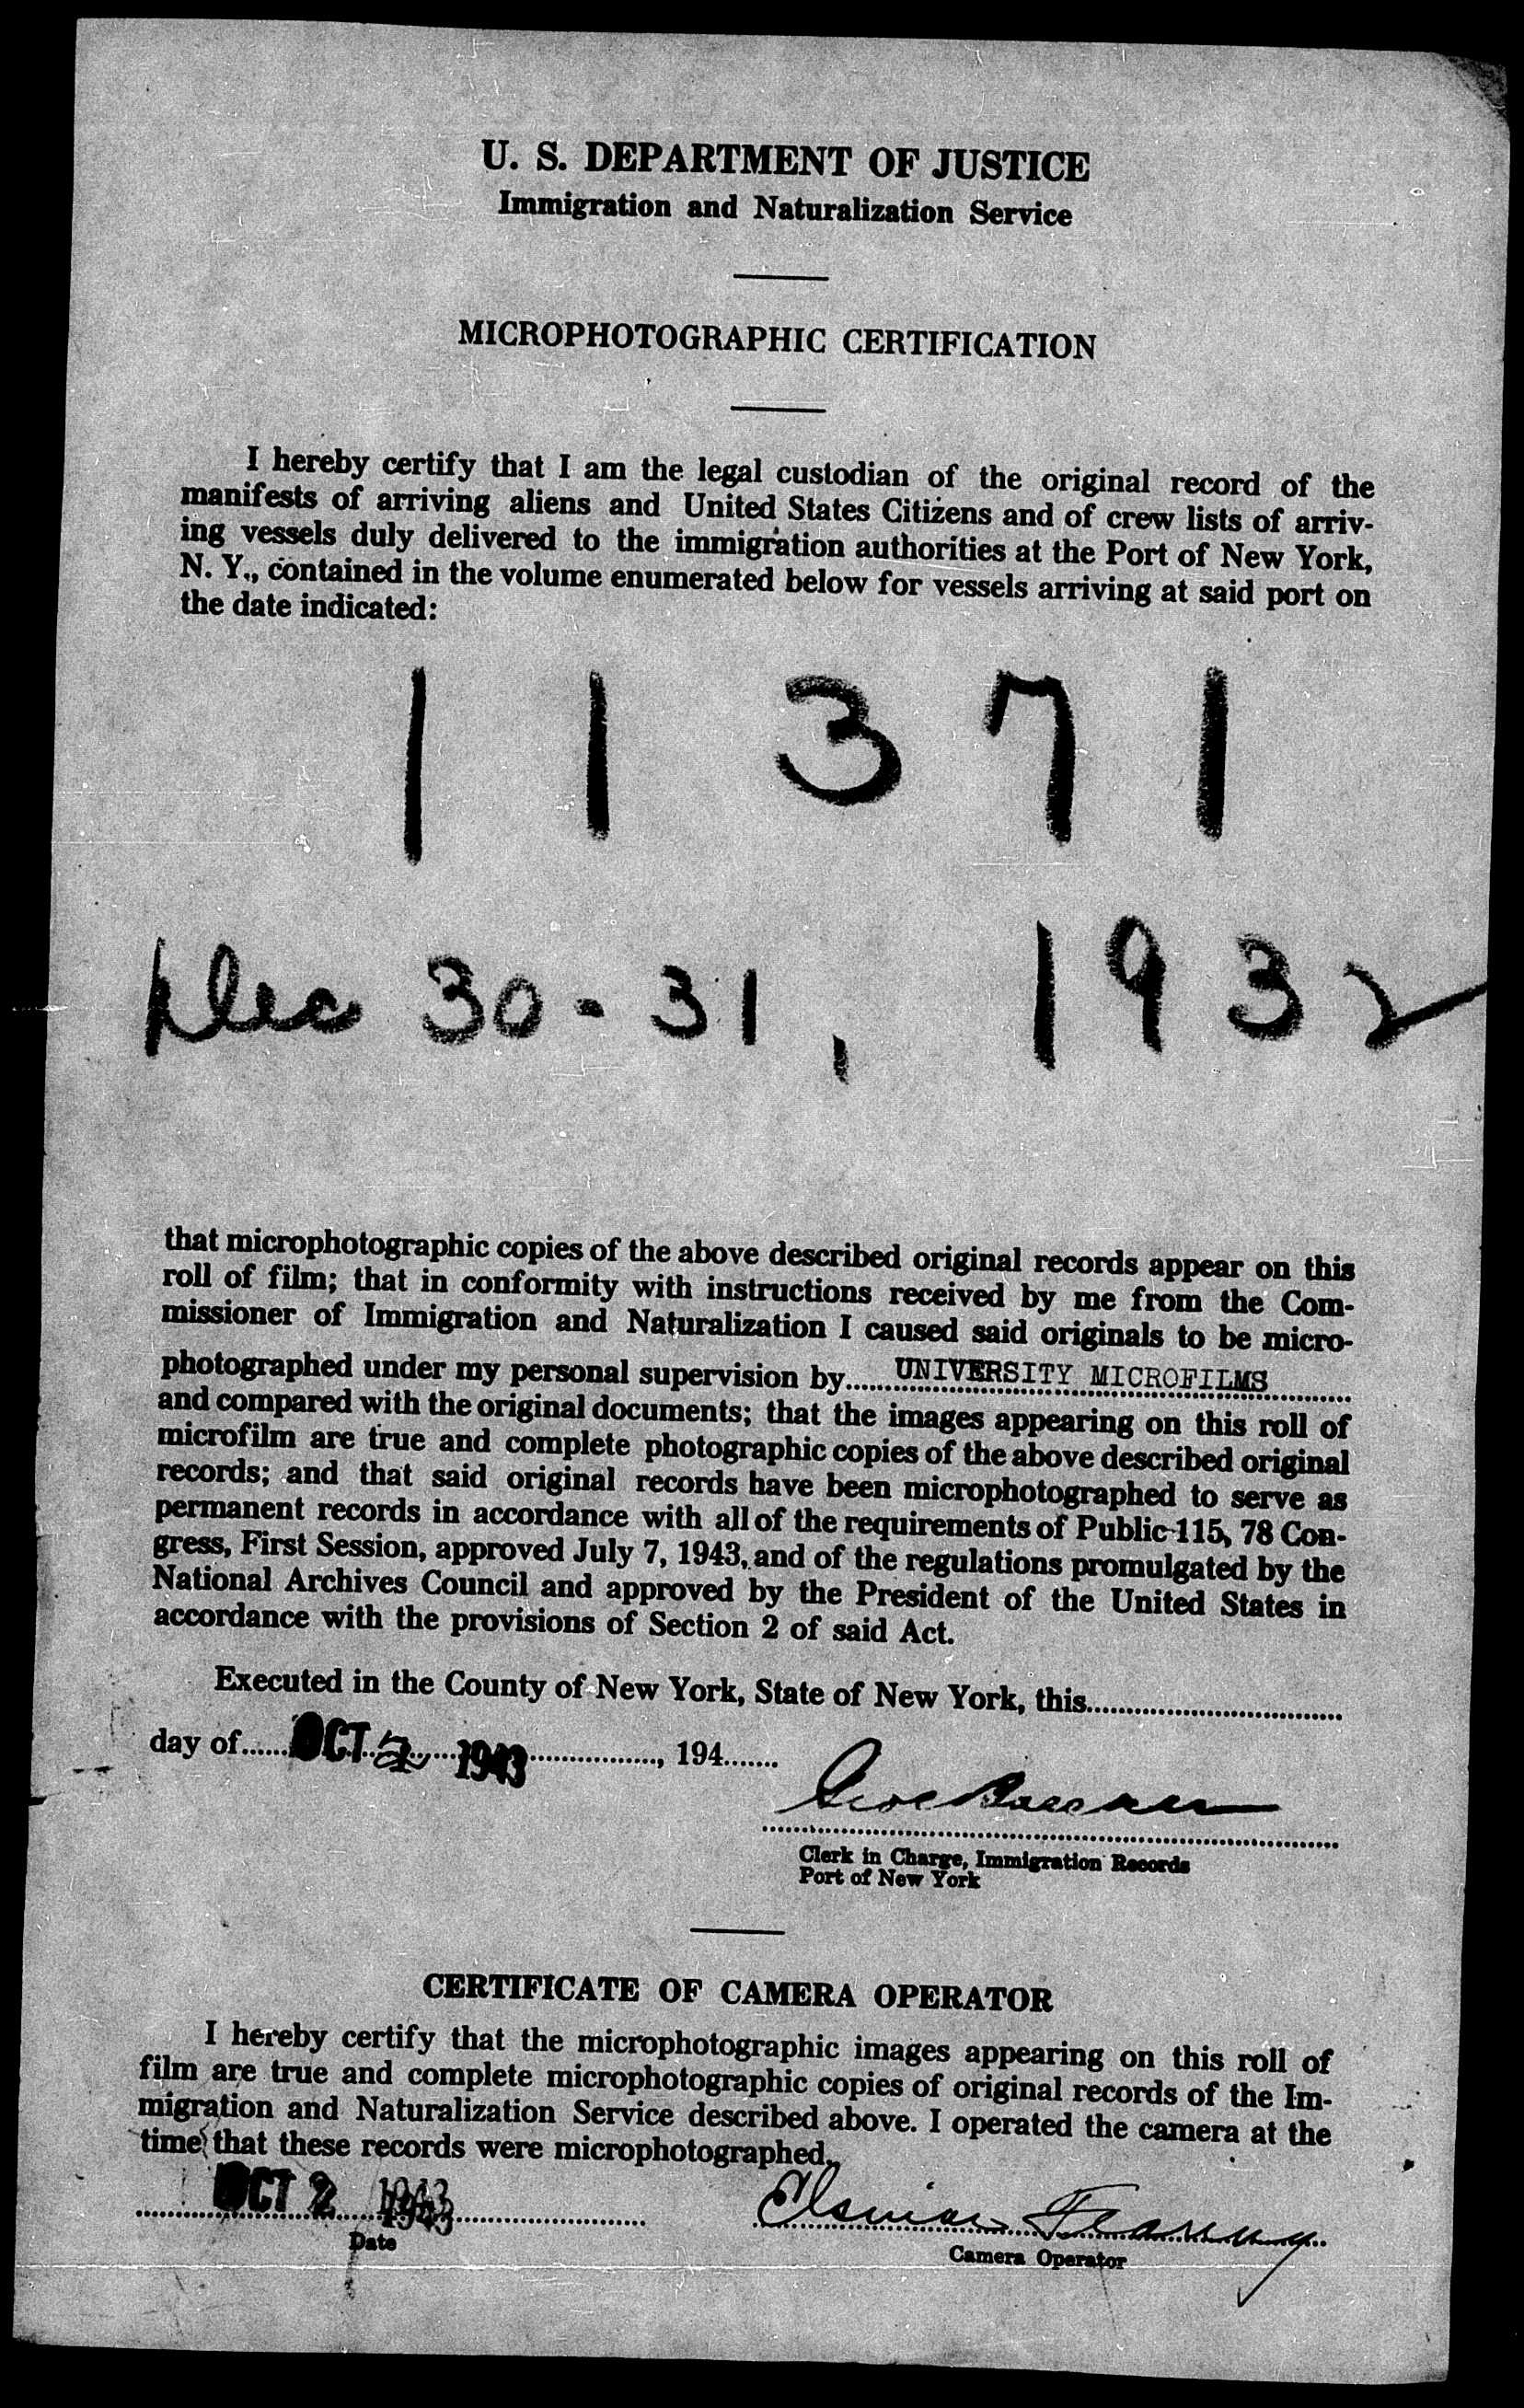 U. S. DEPARTMENT OF JUSTICE
Immigration and Naturalization Service
MICROPHOTOGRAPHIC CERTIFICATION
I hereby certify that I am the legal custodian of the original record of the
manifests of arriving aliens and United States Citizens and of crew lists of arriv-
ing vessels duly delivered to the immigration authorities at the Port of New York,
N. Y., contained in the volume enumerated below for vessels arriving at said port on
the date indicated:
11371
Dec 30-31, 1932
that microphotographic copies of the above described original records appear on this
roll of film; that in conformity with instructions received by me from the Com-
missioner of Immigration and Naturalization I caused said originals to be micro-
photographed under my personal supervision by...... UNIVERSITY MICROFILMS
and compared with the original documents; that the images appearing on this roll of
microfilm are true and complete photographic copies of the above described original
records; and that said original records have been microphotographed to serve as
permanent records in accordance with all of the requirements of Public 115, 78 Con-
gress, First Session, approved July 7, 1943, and of the regulations promulgated by the
National Archives Council and approved by the President of the United States in
accordance with the provisions of Section 2 of said Act.
Executed in the County of New York, State of New York, this
day of OCT 2 1943, 194
Clerk in Charge, Immigration Records
Port of New York
CERTIFICATE OF CAMERA OPERATOR
I hereby certify that the microphotographic images appearing on this roll of
film are true and complete microphotographic copies of original records of the Im-
migration and Naturalization Service described above. I operated the camera at the
time that these records were microphotographed.
OCT 2 1943
Date
Camera Operator